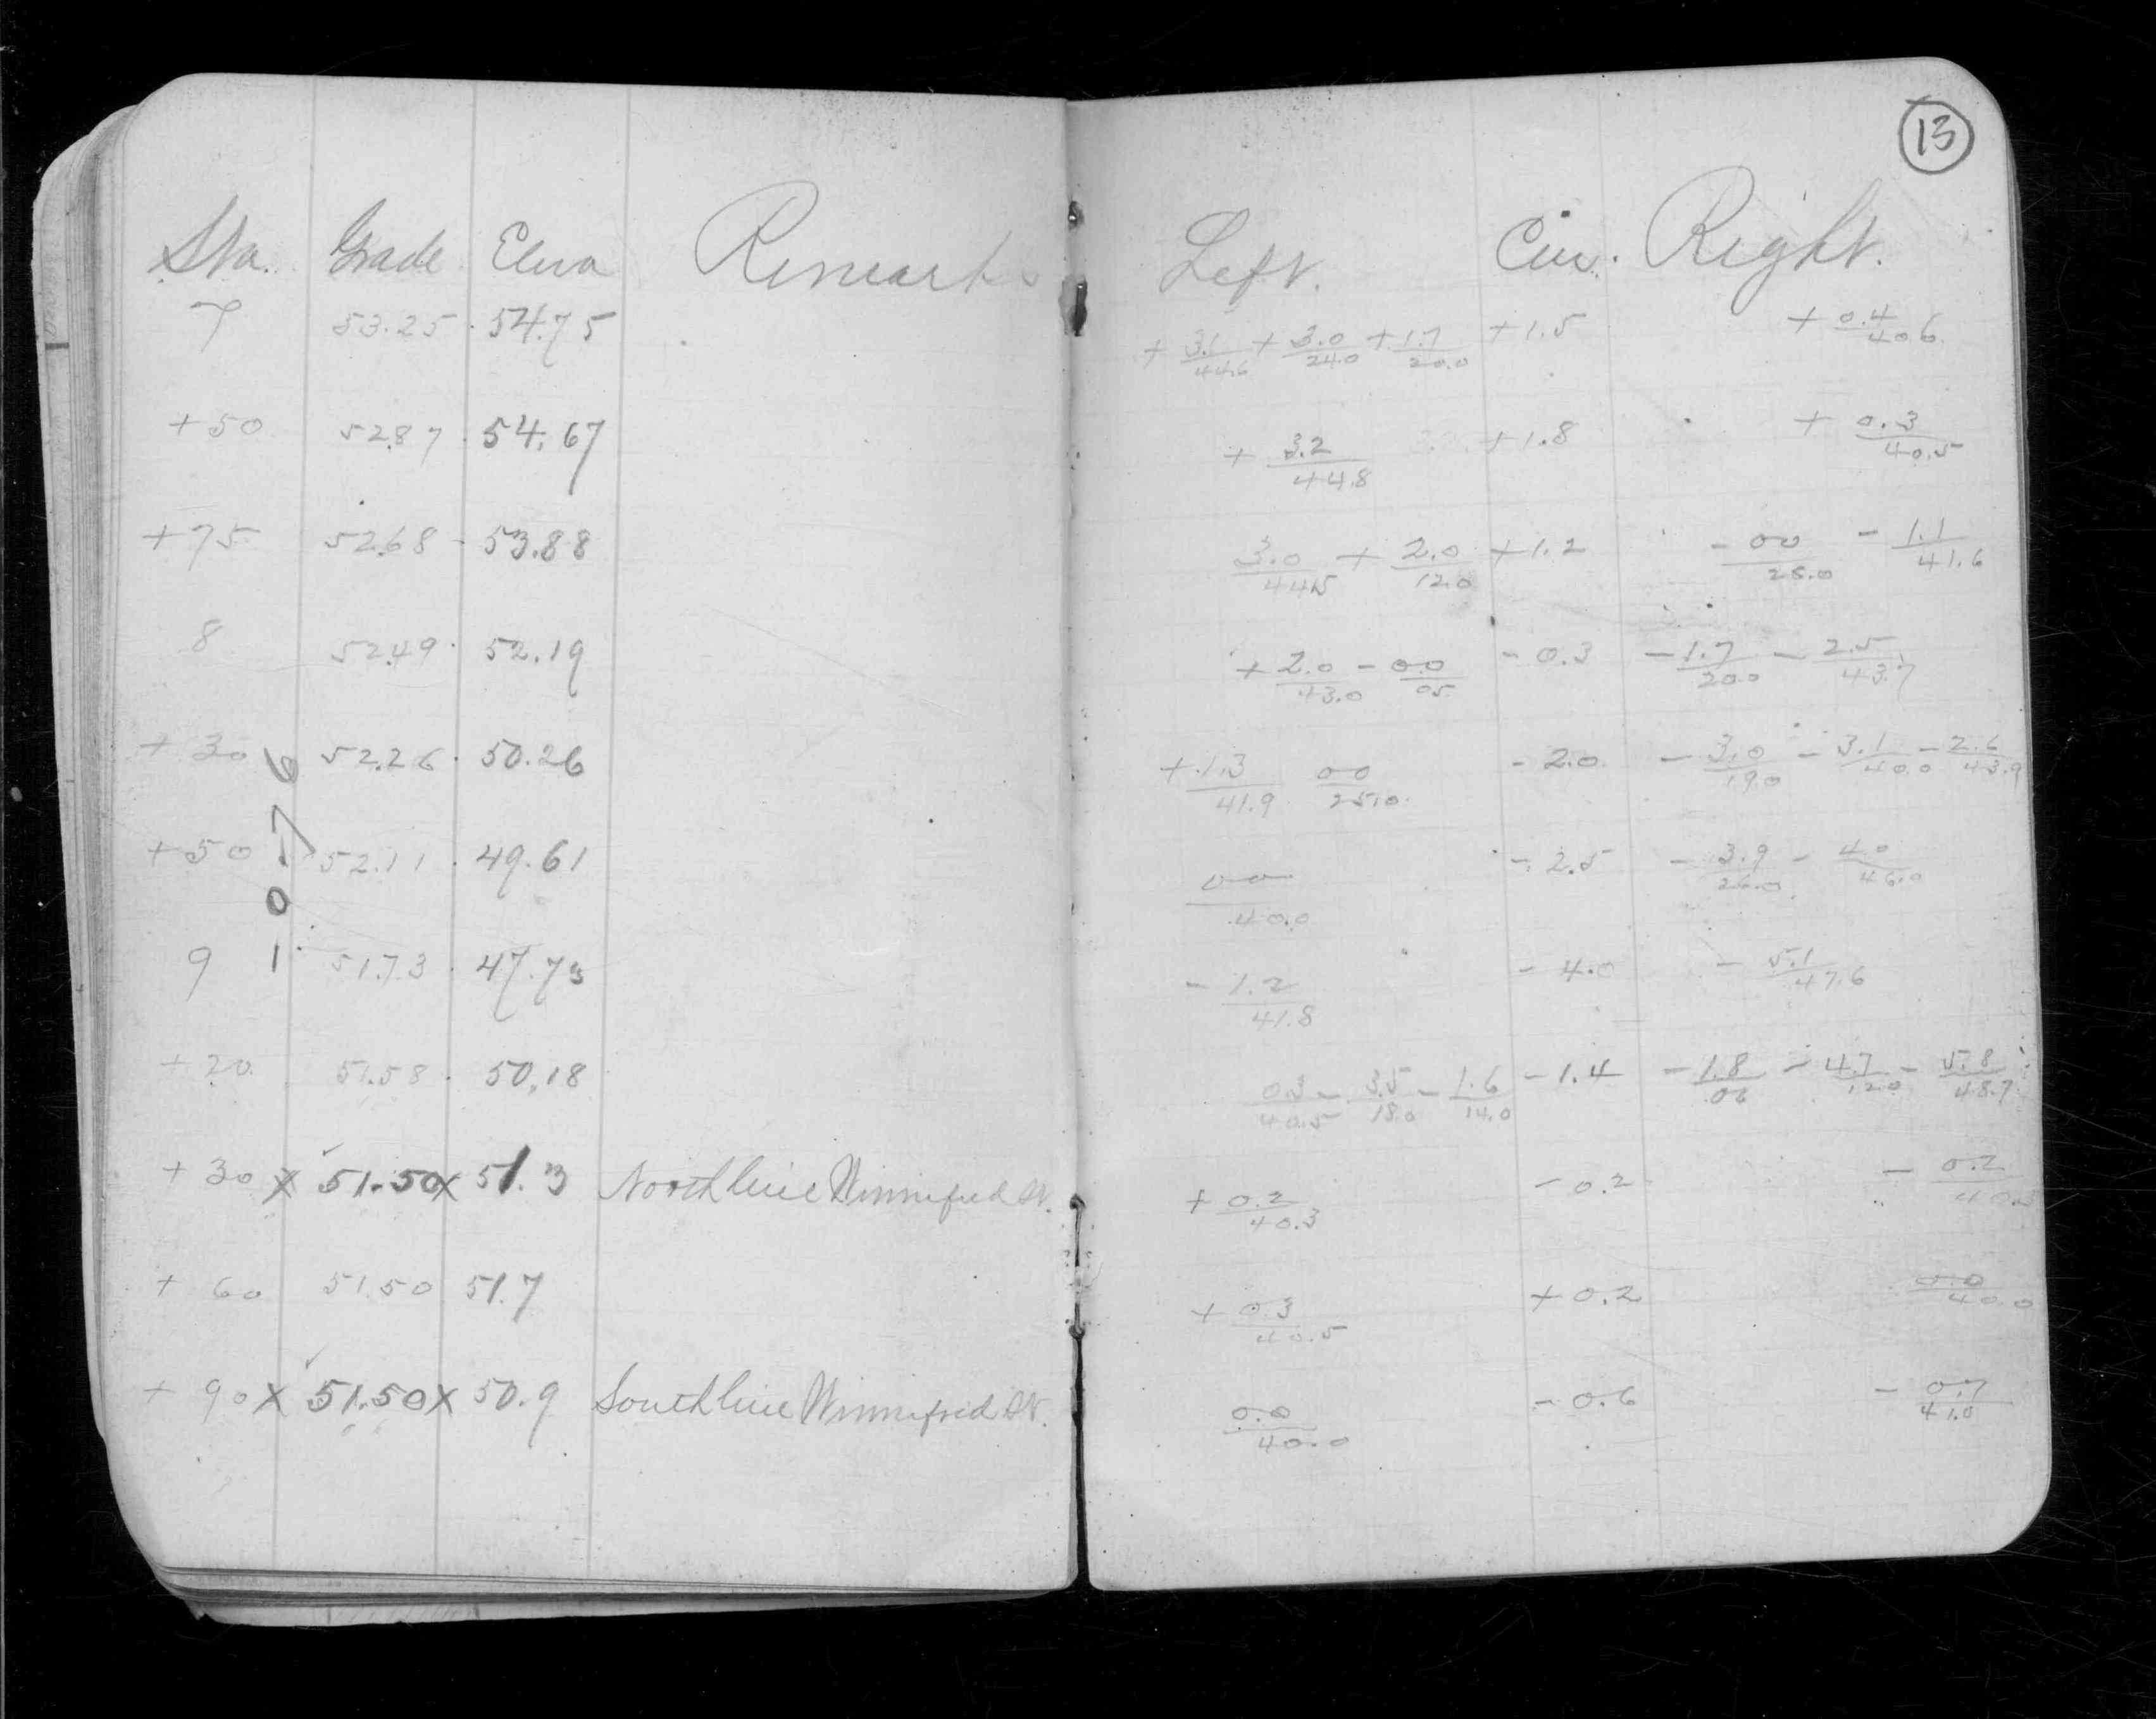 Sta. Grade Eleva Remarks
7 53.25 54.75
+50 52.87 54.67
+75 52.68 53.88
8 52.49 52.19
+30 52.26 50.26
+50 52.11 49.61
9 51.73 47.73
+20 51.58 50.18
+30 x 51.50 x 51.3 North line Winnifred St.
+60 51.50 51.7
+90 x 51.50 x 50.9 South line Winnifred St.
-0.76
13
Left. Cen. Right.
+ 3.1/44.6 + 3.0/24.0 + 1.7/20.0 +1.5 + 0.4/40.6
+ 3.2/44.8 +1.8 + 0.3/40.5
3.0/44.5 + 2.0/12.0 +1.2 - 00/25.0 - 1.1/41.6
+ 2.0/43.0 - 0.0/05 - 0.3 - 1.7/20.0 - 2.5/43.7
+ 1.3/41.9 00/25.0 - 2.0 - 3.0/19.0 - 3.1/40.0 - 2.6/43.9
00/40.0 - 2.5 - 3.9/26.0 - 4.0/46.0
- 1.2/41.8 - 4.0 - 5.1/47.6
0.3/40.5 - 3.5/18.0 - 1.6/14.0 - 1.4 - 1.8/06 - 4.7/12.0 - 5.8/48.7
+ 0.2/40.3 - 0.2 - 0.2/40.3
+ 0.3/40.5 + 0.2 0.0/40.0
0.0/40.0 - 0.6 - 0.7/41.0